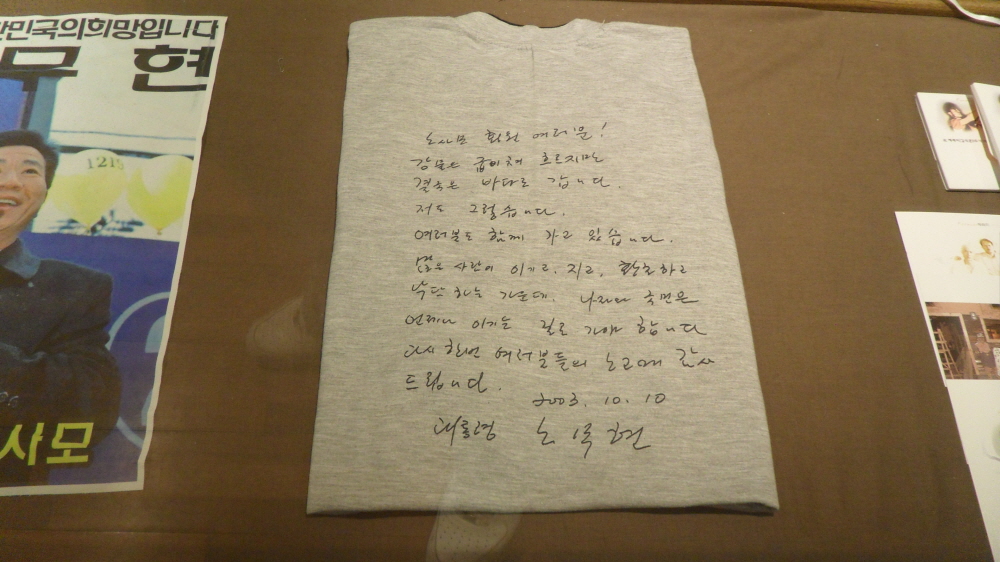 한민국의희망입니다
무 현
1219
사모
노사모 회원 여러분!
강물은 굽이쳐 흐르지만
결국은 바다로 갑니다.
저도 그렇습니다.
여러분도 함께 가고 있습니다.
많은 사람이 이기고, 지고, 환호하고
낙담 하는 가운데, 나라와 국민은
언제나 이기는 길로 가야 합니다
다시 한번 여러분들의 노고에 감사
드립니다.
2003. 10. 10
대통령 노무현